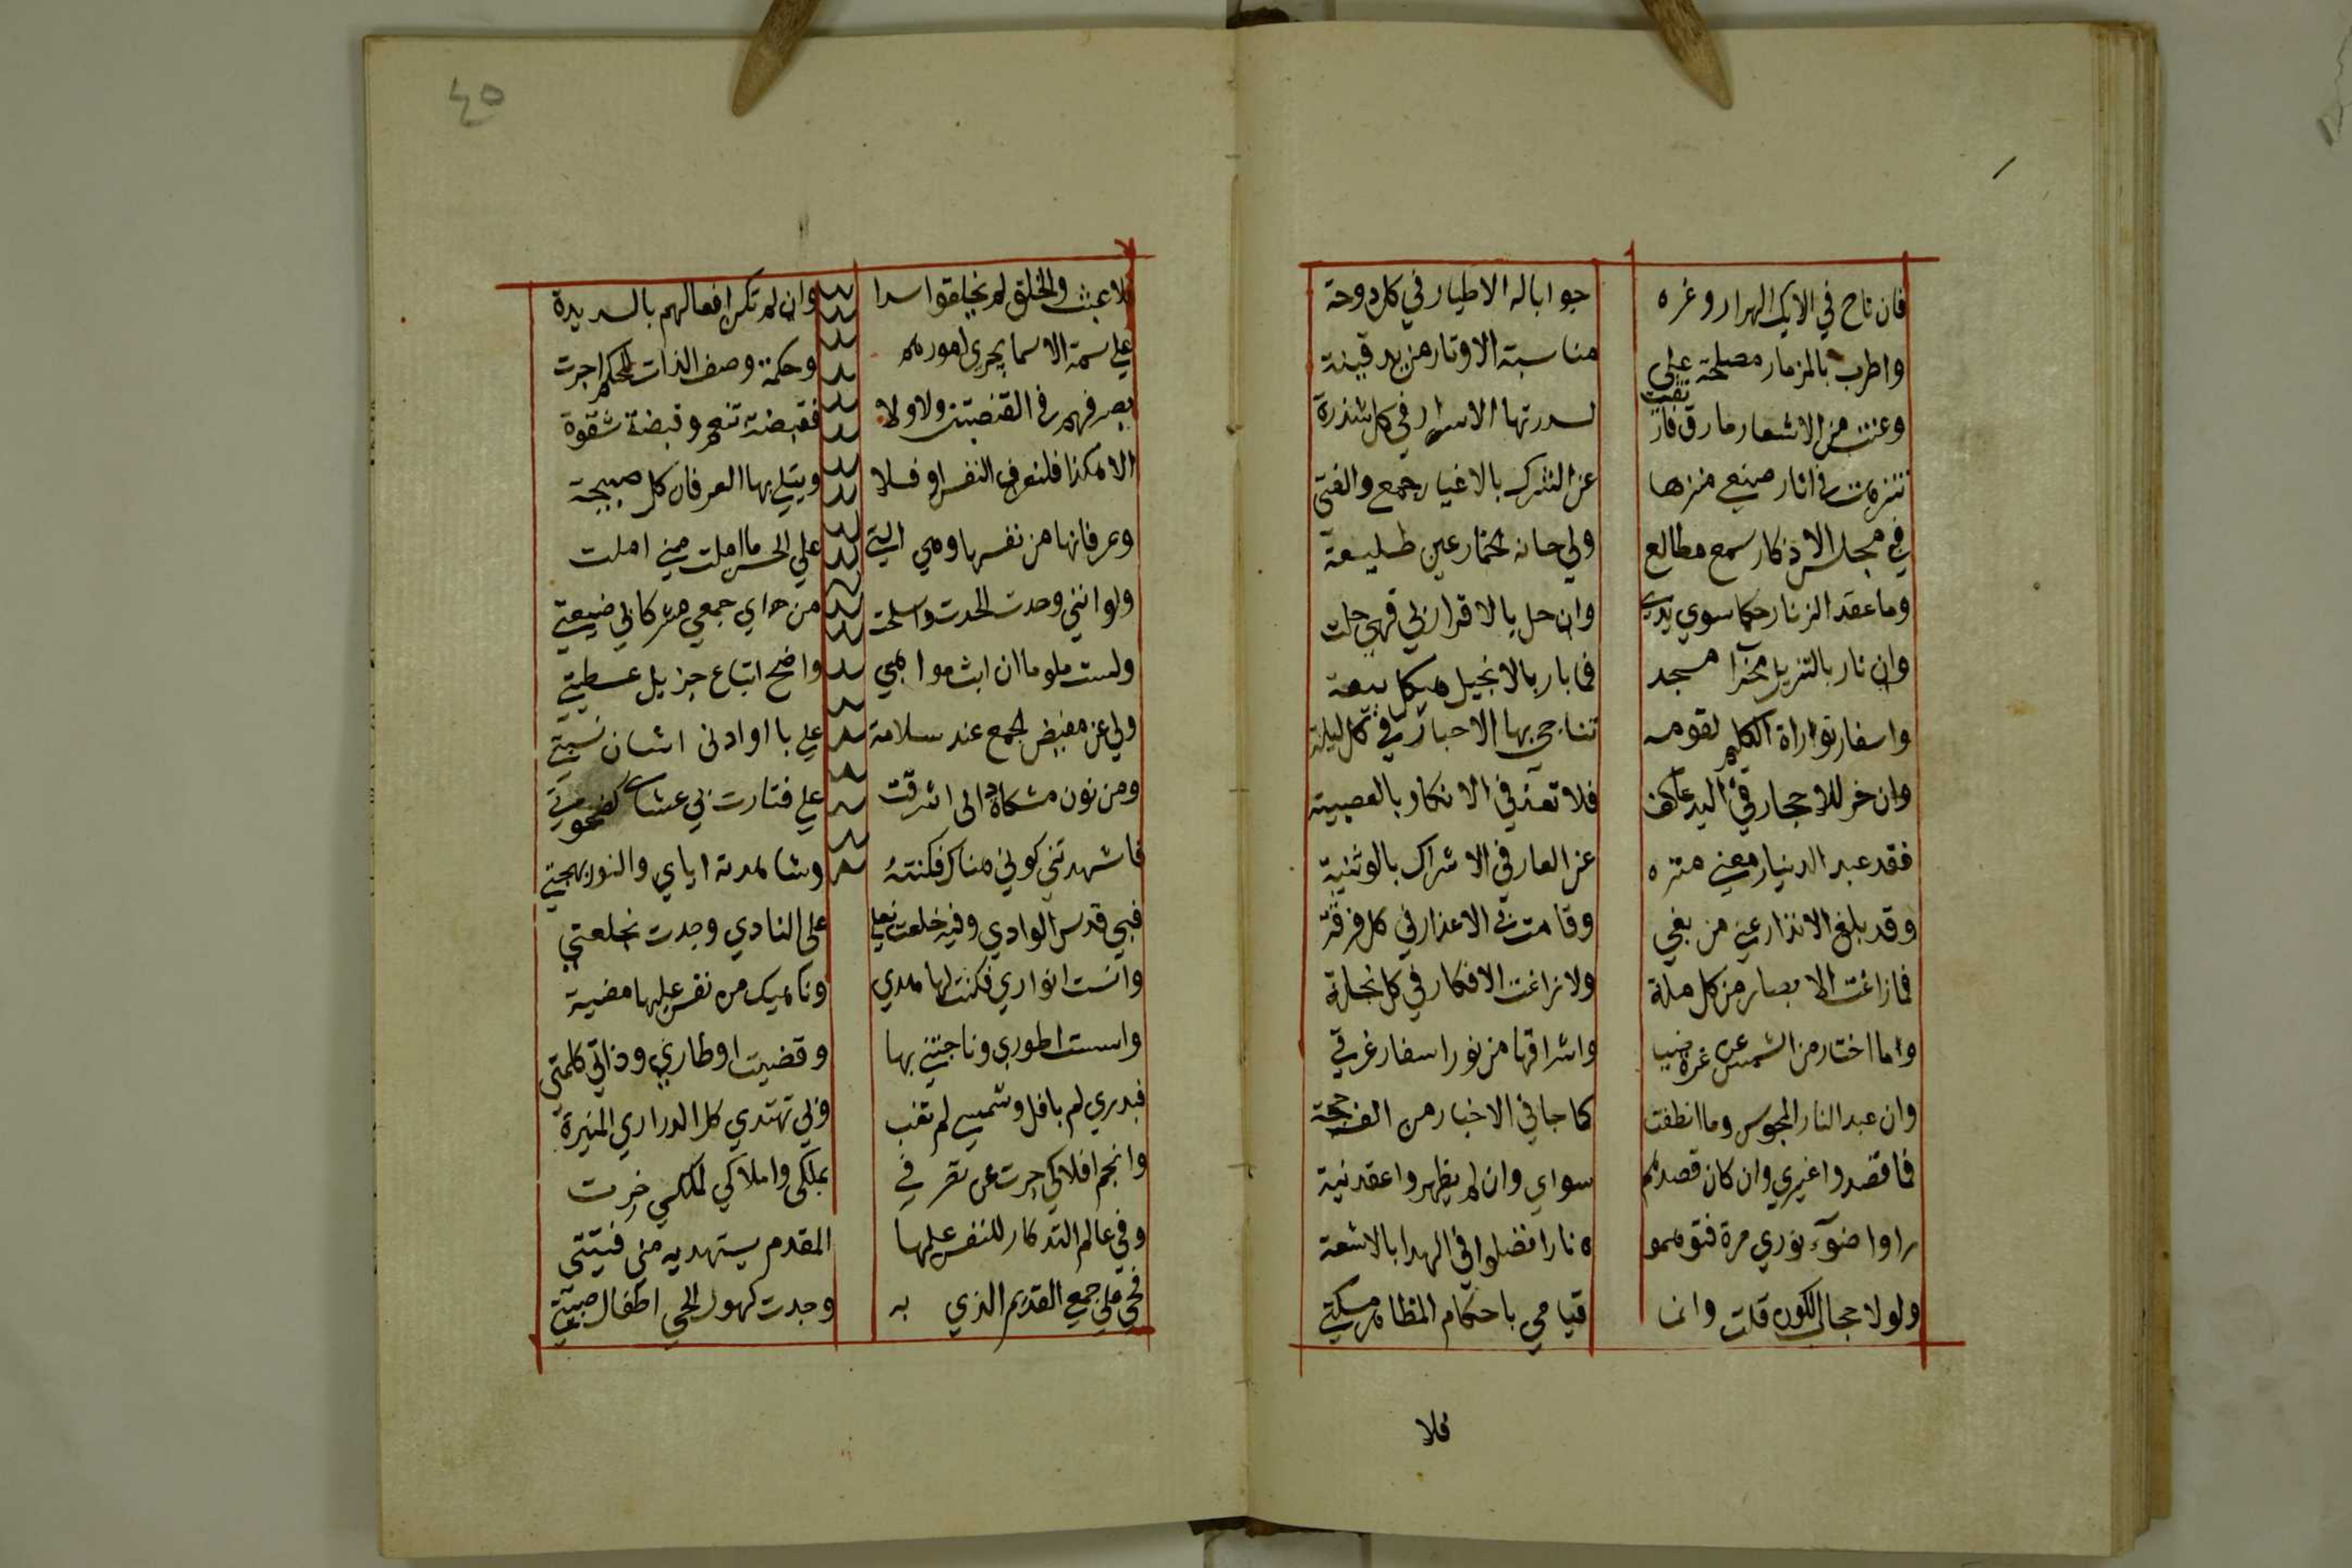 فان ناح في الايك الهزار وغره جوابا له الاطيار في كل دوحة
واطرب بالمزمار مصلحة على مناسبة الاوتار من يد قينة
وغنت من الاشعار مارق فارتقت لسدرتها الاسرار في كل شذرة
تنزهت في اثار صنعي منزها عن الشرك بالاغيار جمعي والفتي
في مجلس الاذكار سمع مطالع ولي حانة الخمار عين طليعة
وما عقد الزنار حكما سوي يدي وان حل بالاقرار لي فهي حلت
وان نار بالتنزيل محرا مسجد فما بار بالانجيل هيكل بيعة
واسفار توراة الكليم لقومه تناجي بها الاحبار في كل ليلة
وان خر للاحجار في البد عاكف فلا تعد في الانكار بالعصبية
فقد عبد الدنيار معني منزه عن العار في الاشراك بالوثنية
وقد بلغ الانذار عني من بغي وقامت بي الاعذار في كل فرقة
فما زاغت الابصار من كل ملة ولا زاغت الافكار في كل نحلة
واما اختار من الشمس عن غرة ضيا واشراقها من نور اسفار غرتي
وان عبد النار المجوس وما انطفت كما جا في الاخبار من الف حجة
فما قصدوا غيري وان كان قصدهم سواي وان لم يظهروا عقد نية
راوا ضوء نوري مرة فتوهمو ه نارا فضلوا في الهدا بالاشعة
ولولا حجاب الكون قلت وانما قيامي باحكام المظاهر مسكتي
فلا
٤٥
فلا عبث والخلق لم يخلقوا سدا وان لم تكن افعالهم بالسديدة
علي سمة الاسما تجري امورهم وحكمة وصف الذات للحكم اجرت
يصرفهم في القبضتين ولا ولا فقبضة تنعيم وقبضة شقوة
الا هكذا فلتعرف النفس او فلا ويتلي بها العرفان كل صبيحة
وعرفانها من نفسها وهي التي علي الحس ما املت مني املت
ولو انني وحدت الحدت وانسلخت من اي جمعي مشركا بي ضيعتي
ولست ملوما ان ابث مواهبي وامنح اتباعي جزيل عطيتي
ولي عن مفيض الجمع عند سلامه علي با او ادنى اشارة نسبتي
ومن نوره مشكاة ذاتي اشرقت علي فنارت بي عشاي كضحوتي
فاشهدتني كوني هناك فكنته وشاهدته اياي والنور بهجتي
فبي قدس الوادي وفيه خلعت نعلي على النادي وجدت بخلعتي
وانست انواري فكنت لها هدي وناهيك من نفس عليها مضية
واسست اطوري وناجيتني بها وقضيت اوطاري وذاتي كلمتي
فبدري لم يافل وشمسي لم تغب وبي تهتدي كل الدراري المنيرة
وانجم افلاكي جرت عن تصرفي بملكي واملاكي لملكي خرت
وفي عالم التذكار للنفس علمها المقدم يستهديه مني فتيتي
فحي علي جمعي القديم الذي به وجدت كهول الحي اطفال صبيتي